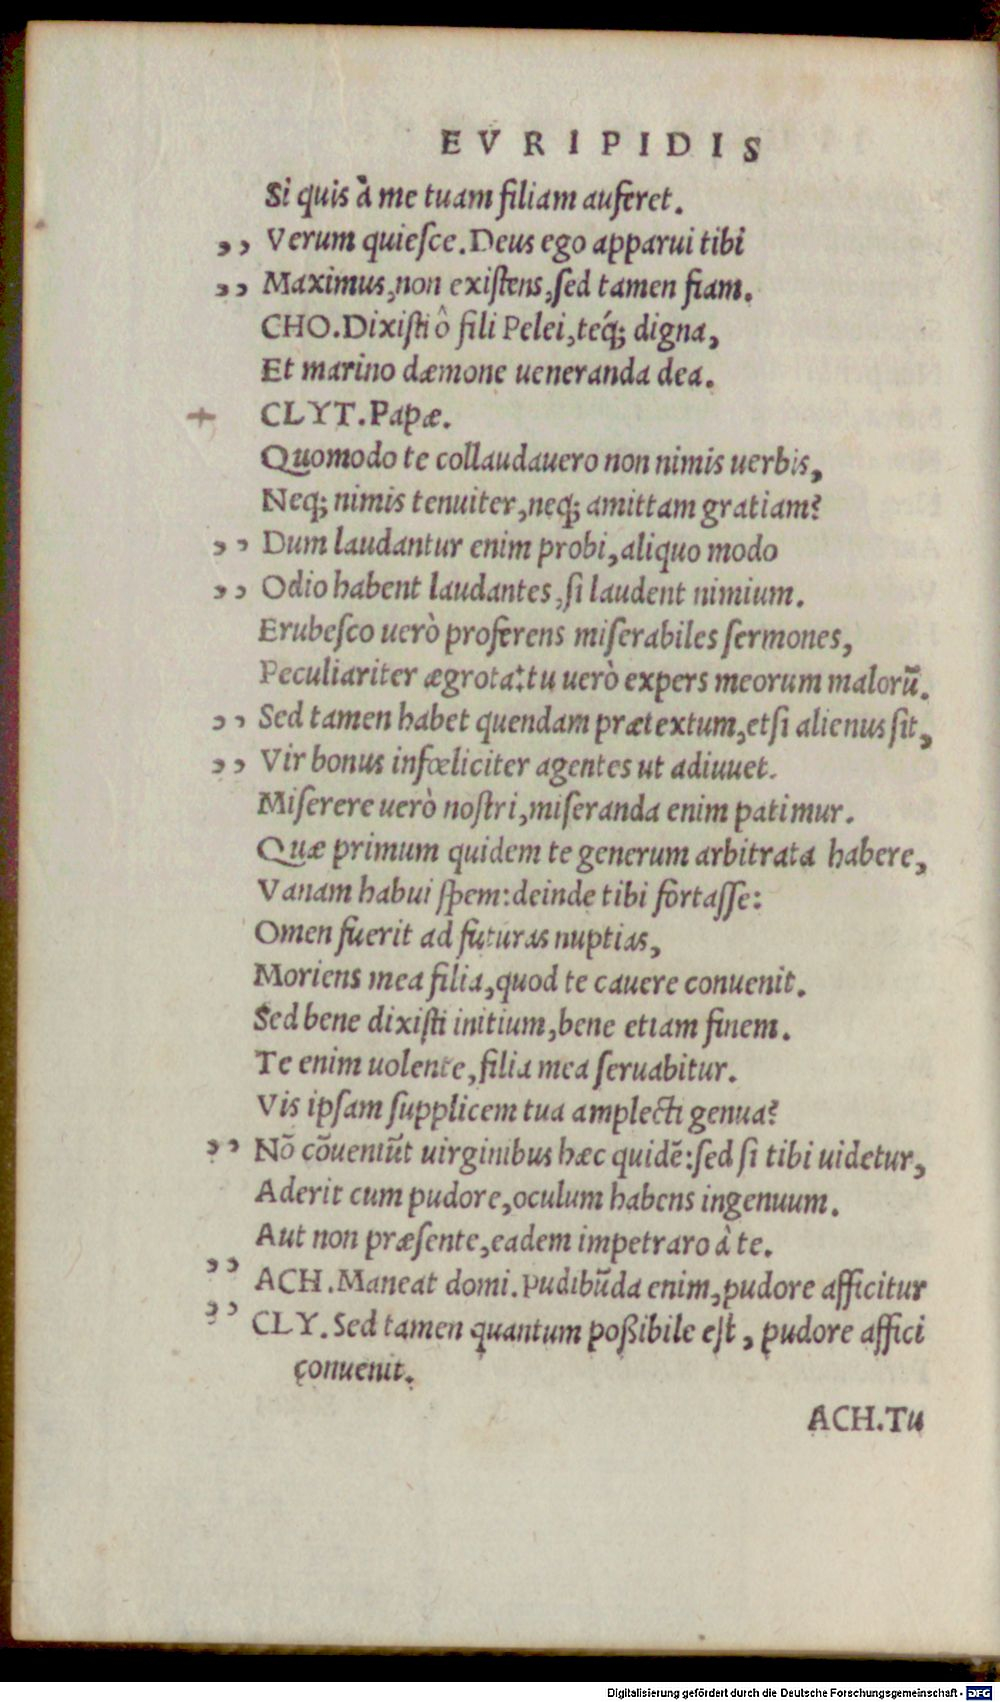 EVRIPIDIS
Si quis à me tuam filiam auferet.
,, Verum quieſce. Deus ego apparui tibi
,, Maximus, non exiſtens, ſed tamen fiam.
CHO. Dixiſti ô fili Pelei, téq́; digna,
Et marino dæmone ueneranda dea.
+ CLYT. Papæ.
Quomodo te collaudauero non nimis uerbis,
Neq; nimis tenuiter, neq; amittam gratiam?
,, Dum laudantur enim probi, aliquo modo
,, Odio habent laudantes, ſi laudent nimium.
Erubeſco uerò proferens miſerabiles ſermones,
Peculiariter ægrota: tu uerò expers meorum malorū.
,, Sed tamen habet quendam prætextum, etſi alienus ſit,
,, Vir bonus infœliciter agentes ut adiuuet.
Miſerere uerò noſtri, miſeranda enim patimur.
Quæ primum quidem te generum arbitrata habere,
Vanam habui ſpem: deinde tibi fortaſſe:
Omen fuerit ad futuras nuptias,
Moriens mea filia, quod te cauere conuenit.
Sed bene dixiſti initium, bene etiam finem.
Te enim uolente, filia mea ſeruabitur.
Vis ipſam ſupplicem tua amplecti genua?
,, Nō cōueniūt uirginibus hæc quidē: ſed ſi tibi uidetur,
Aderit cum pudore, oculum habens ingenuum.
Aut non præſente, eadem impetraro à te.
,, ACH. Maneat domi. Pudibūda enim, pudore afficitur
,, CLY. Sed tamen quantum poßibile eſt, pudore affici
conuenit.
ACH. Tu
Digitalisierung gefördert durch die Deutsche Forschungsgemeinschaft - DFG